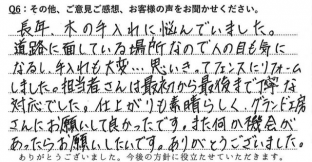 Q6：その他、ご意見ご感想、お客様の声をお聞かせください。
長年、木の手入れに悩んでいました。
道路に面している場所なので人の目も気に
なるし、手入れも大変…思いきってフェンスにリフォーム
しました。担当者さんは最初から最後まで丁寧な
対応でした。仕上がりも素晴らしく、グランド工房
さんにお願いして良かったです。また何か機会が
あったらお願いしたいです。ありがとうございました。
ありがとうございました。今後の方針に役立たせていただきます。